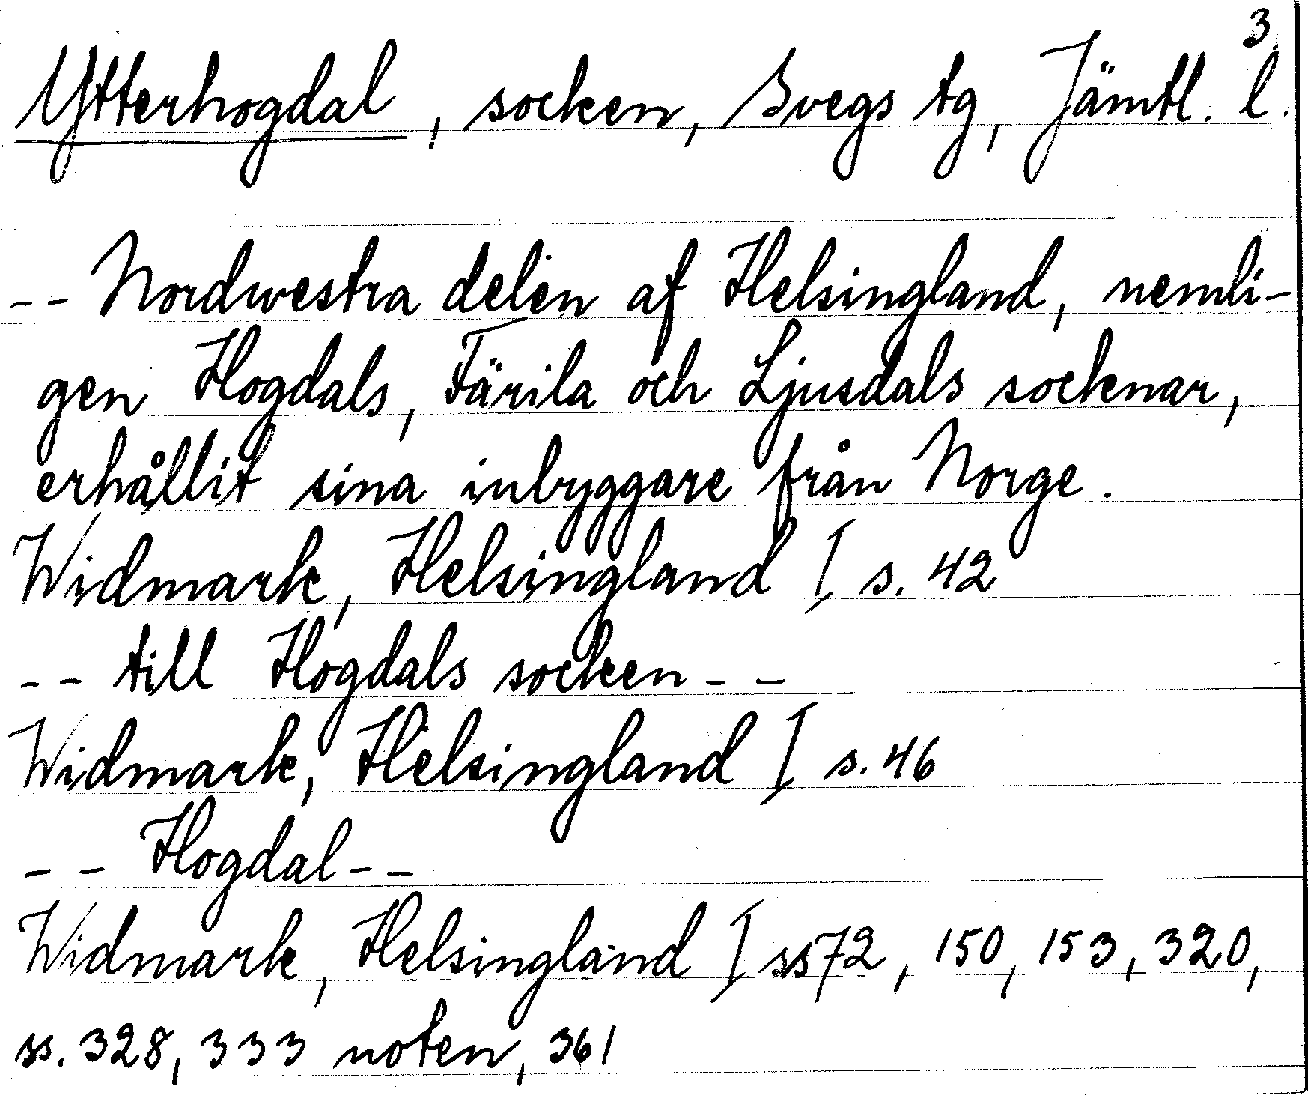 3
Ytterhogdal, socken, Svegs tg, Jämtl. l.
-- Nordwestra delen af Helsingland, nemli-
gen Hogdals, Färila och Ljusdals socknar,
erhållit sina inbyggare från Norge.
Widmark, Helsingland I s. 42
-- till Hogdals socken --
Widmark, Helsingland I s. 46
-- Hogdal --
Widmark, Helsingland I ss 72, 150, 153, 320,
ss. 328, 333 noten, 361